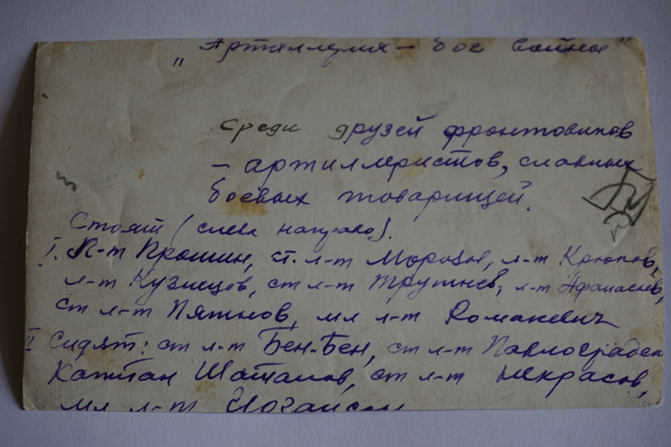 "Артиллерия – бог войны"
Среди друзей фронтовиков
– артиллеристов, славных
боевых товарищей.
Стоят (слева направо).
I. Л-т Прошин, ст. л-т Морозов, л-т Крюков,
л-т Кузнецов, ст л-т Трутнев, л-т Афанасьев,
ст л-т Пятнов, мл л-т Романевич
I Сидят: ст л-т Бен-Бен, ст л-т
Капитан Шаталов, ст л-т Некрасов,
мл л-т